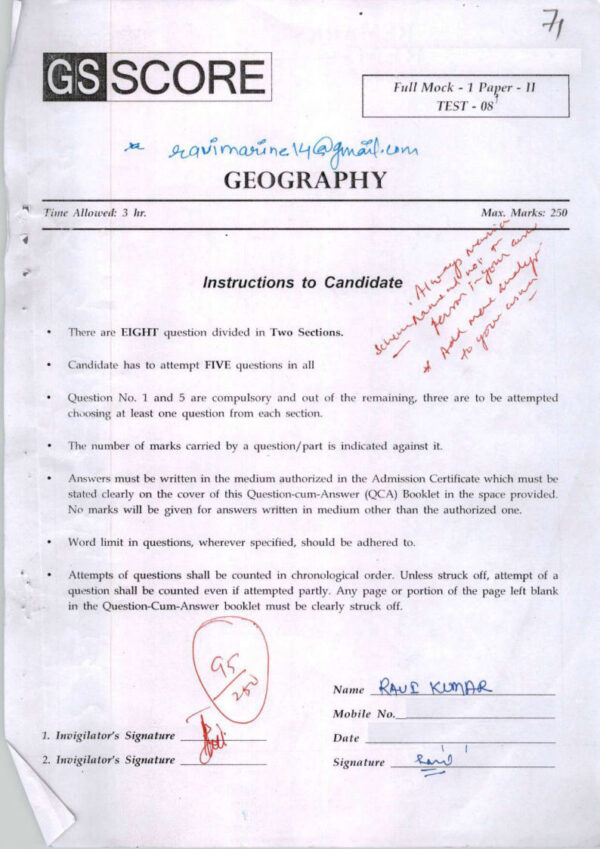 71
GS SCORE
Full Mock - 1 Paper - II
TEST - 08
ravimarine14@gmail.com
GEOGRAPHY
Time Allowed: 3 hr.
Max. Marks: 250
Instructions to Candidate
Always
your
* Add more
to your
• There are EIGHT question divided in Two Sections.
• Candidate has to attempt FIVE questions in all
• Question No. 1 and 5 are compulsory and out of the remaining, three are to be attempted
choosing at least one question from each section.
• The number of marks carried by a question/part is indicated against it.
• Answers must be written in the medium authorized in the Admission Certificate which must be
stated clearly on the cover of this Question-cum-Answer (QCA) Booklet in the space provided.
No marks will be given for answers written in medium other than the authorized one.
• Word limit in questions, wherever specified, should be adhered to.
• Attempts of questions shall be counted in chronological order. Unless struck off, attempt of a
question shall be counted even if attempted partly. Any page or portion of the page left blank
in the Question-Cum-Answer booklet must be clearly struck off.
95/250
Name RAVI KUMAR
Mobile No.
1. Invigilator's Signature
Date
2. Invigilator's Signature
Signature Ravi